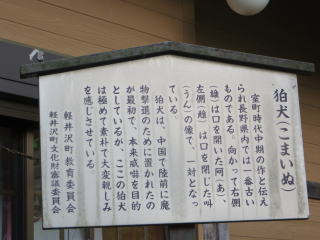 狛犬(こまいぬ)
室町時代中期の作と伝え
られ長野県内では一番古い
ものである。向かって右側
(雄)は口を開いた阿(あ)、
左側(雌)は口を閉じた吽
(うん)の像で、一対となっ
ている。
狛犬は、中国で陸前に魔
物撃退のために置かれたの
が最初で、本来威嚇を目的
としているが、ここの狛犬
は極めて素朴で大変親しみ
を感じさせている。
軽井沢町教育委員会
軽井沢町文化財審議委員会